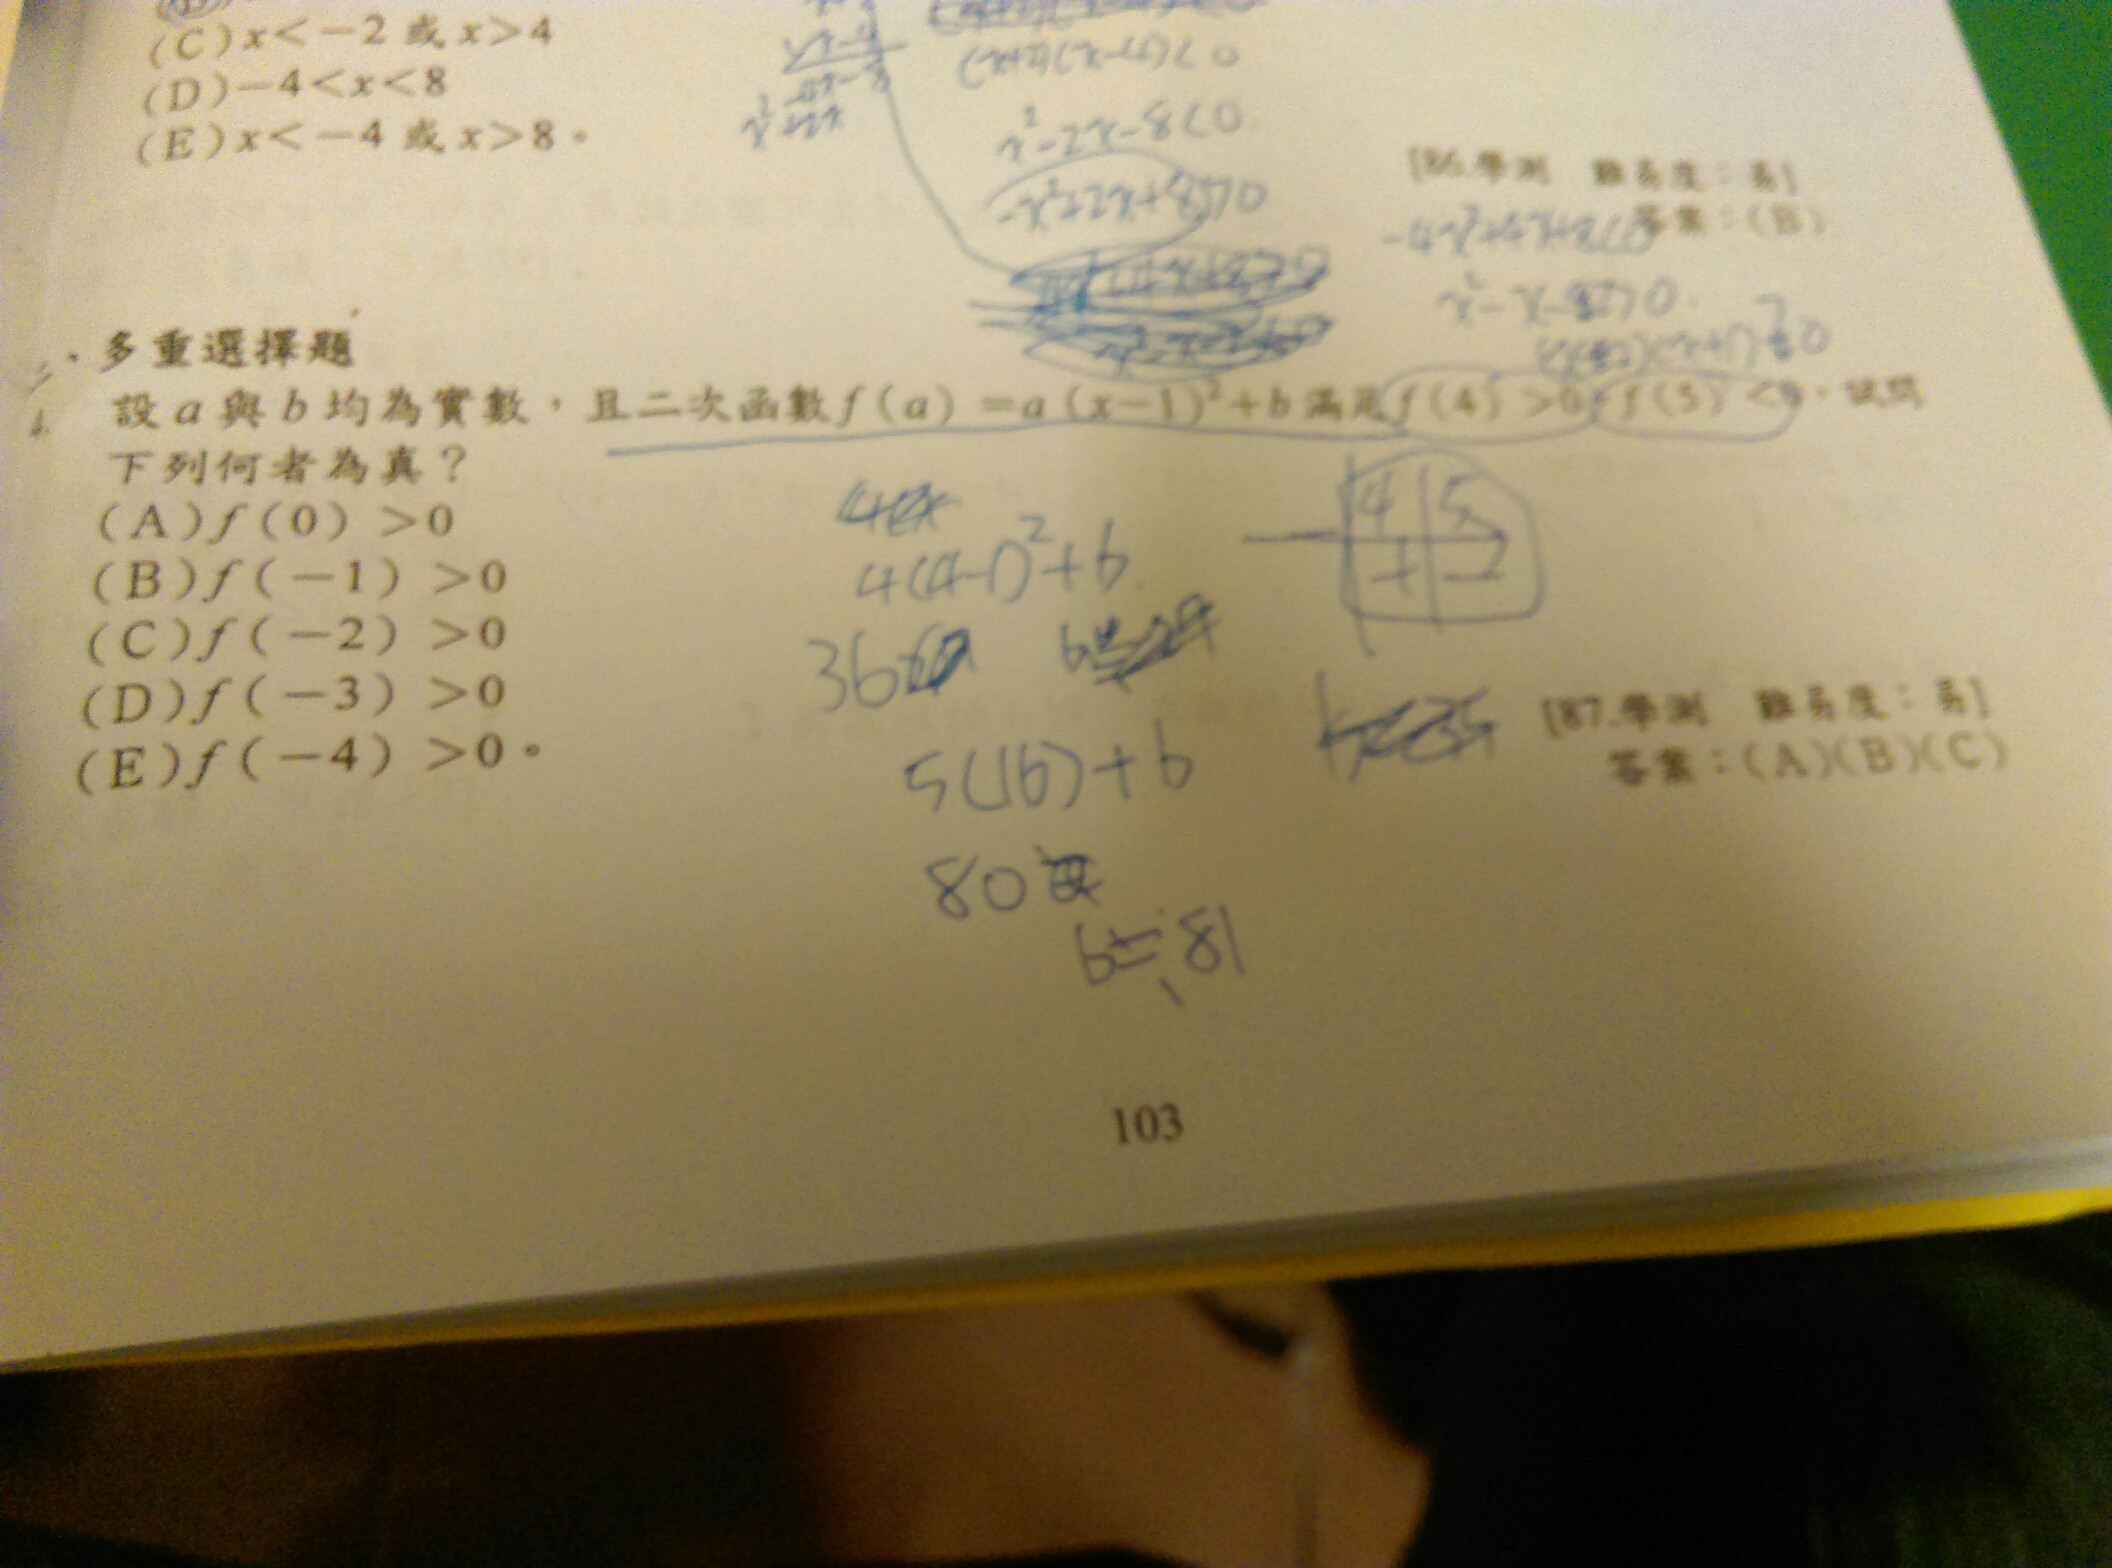 (C) x<-2 或 x>4
(D) -4<x<8
(E) x<-4 或 x>8。
(x+2)(x-4)<0
x²-2x-8<0
-x²+2x+8>0
[86.學測 難易度:易]
答案:(B)
多重選擇題
設 a 與 b 均為實數,且二次函數 f(a)=a(x-1)²+b 滿足 f(4)>0, f(5)<0,試問
下列何者為真?
(A) f(0) >0
(B) f(-1) >0
(C) f(-2) >0
(D) f(-3) >0
(E) f(-4) >0。
4 5
+ -
4(4-1)²+b
36
5(16)+b
80
81
[87.學測 難易度:易]
答案:(A)(B)(C)
103